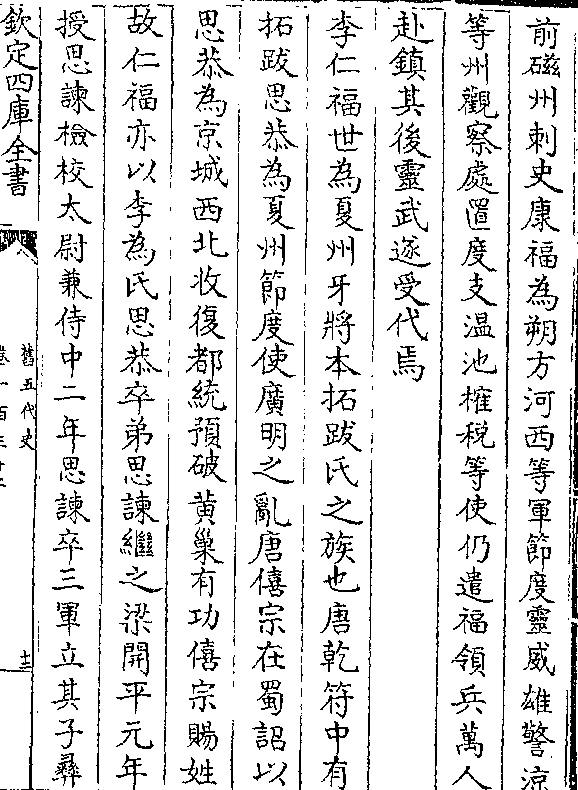 前磁州刺史康福為朔方河西等軍節度靈威雄警涼
等州觀察處置度支温池榷税等使仍遣福領兵萬人
赴鎮其後靈武遂受代焉
李仁福世為夏州牙將本拓跋氏之族也唐乾符中有
拓跋思恭為夏州節度使廣明之亂唐僖宗在蜀詔以
思恭為京城西北收復都統預破黄巢有功僖宗賜姓
故仁福亦以李為氏思恭卒弟思諫繼之梁開平元年
授思諫檢校太尉兼侍中二年思諫卒三軍立其子彞
欽定四庫全書
舊五代史
卷一百三十二
十三